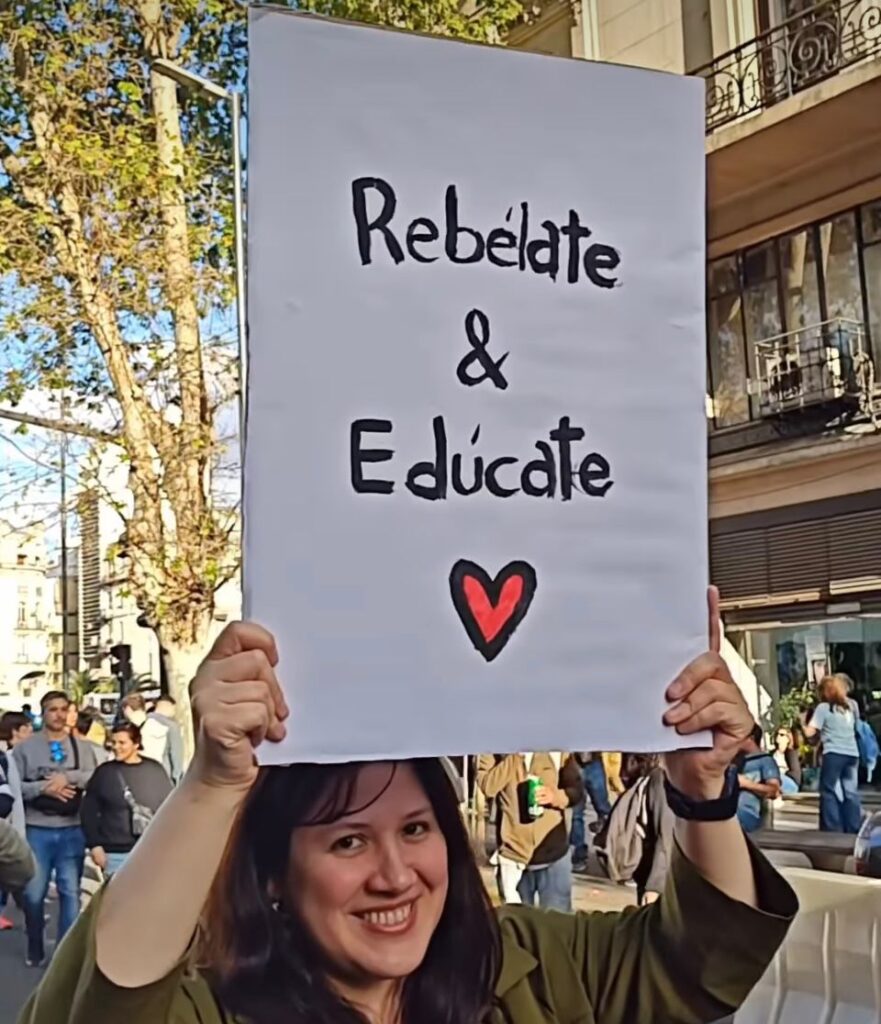 Rebélate
&
Edúcate